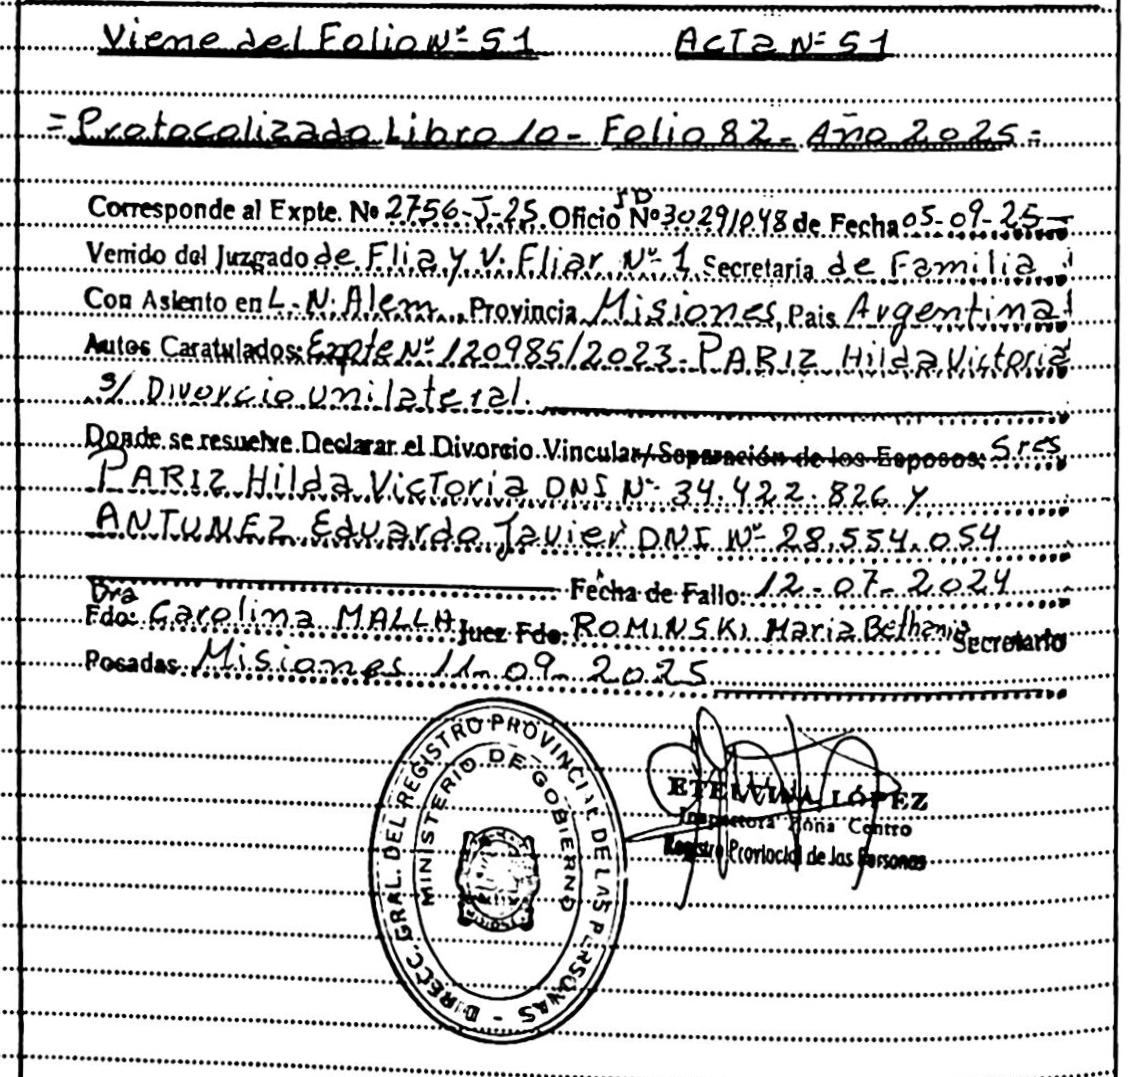 Viene del Folio Nº 51 Acta Nº 51
= Protocolizado Libro 10 - Folio 82 - Año 2025 =
Corresponde al Expte. Nº 2756-J-25 Oficio Nº 3029/048 de Fecha 05-09-25
Venido del Juzgado de Flia y V. Fliar Nº 1 Secretaria de Familia
Con Asiento en L. N. Alem, Provincia Misiones, Pais Argentina
Autos Caratulados: Expte Nº 120985/2023 - PARIZ Hilda Victoria
s/ Divorcio unilateral.
Donde se resuelve Declarar el Divorcio Vincular/Separación de los Esposos: Sres
PARIZ Hilda Victoria DNI Nº 34.422.826 y
ANTUNEZ Eduardo Javier DNI Nº 28.554.054
Fecha de Fallo: 12-07-2024
Dra
Fdo: Carolina MALLH Juez Fdo: ROMINSKI Maria Bethania Secretario
Posadas Misiones 11-09-2025
DIRECC. GRAL. DEL REGISTRO PROVINCIAL DE LAS PERSONAS -
MINISTERIO DE GOBIERNO
ETELVINA LÓPEZ
Inspectora Zona Centro
Registro Provincial de las Personas